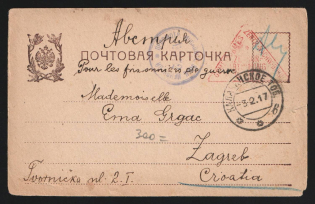 Австрия
ПОЧТОВАЯ КАРТОЧКА
Pour les prisonniers de guerre
Mademoiselle
Ema Grgac
300=
Zagreb
Tvornička ul. 2. I.
Croatia
-8-2.17